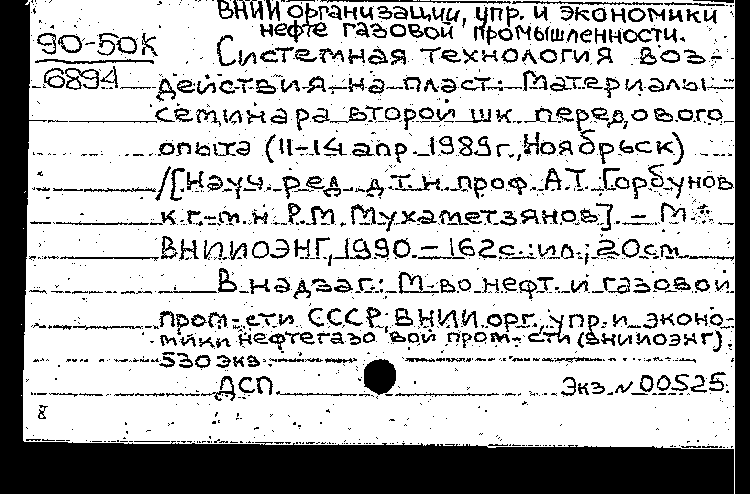 ВНИИ организации, упр. и экономики
нефте газовой промышленности.
90-50к
6894
Системная технология воз-
действия на пласт: Материалы
семинара второй шк. передового
опыта (11-14 апр. 1989г., Ноябрьск)
/[Науч. ред. д.т.н. проф. А.Т. Горбунов
к.г.-м.н. Р.М. Мухаметзянов]. - М.:
ВНИИОЭНГ, 1990. - 162с.: ил.; 20см
В надзаг.: М-во нефт. и газовой
пром-сти СССР, ВНИИ орг., упр. и эконо-
мики нефтегазо вой пром-сти (ВНИИОЭНГ).
530 экз.
ДСП. Экз. N 00525
8